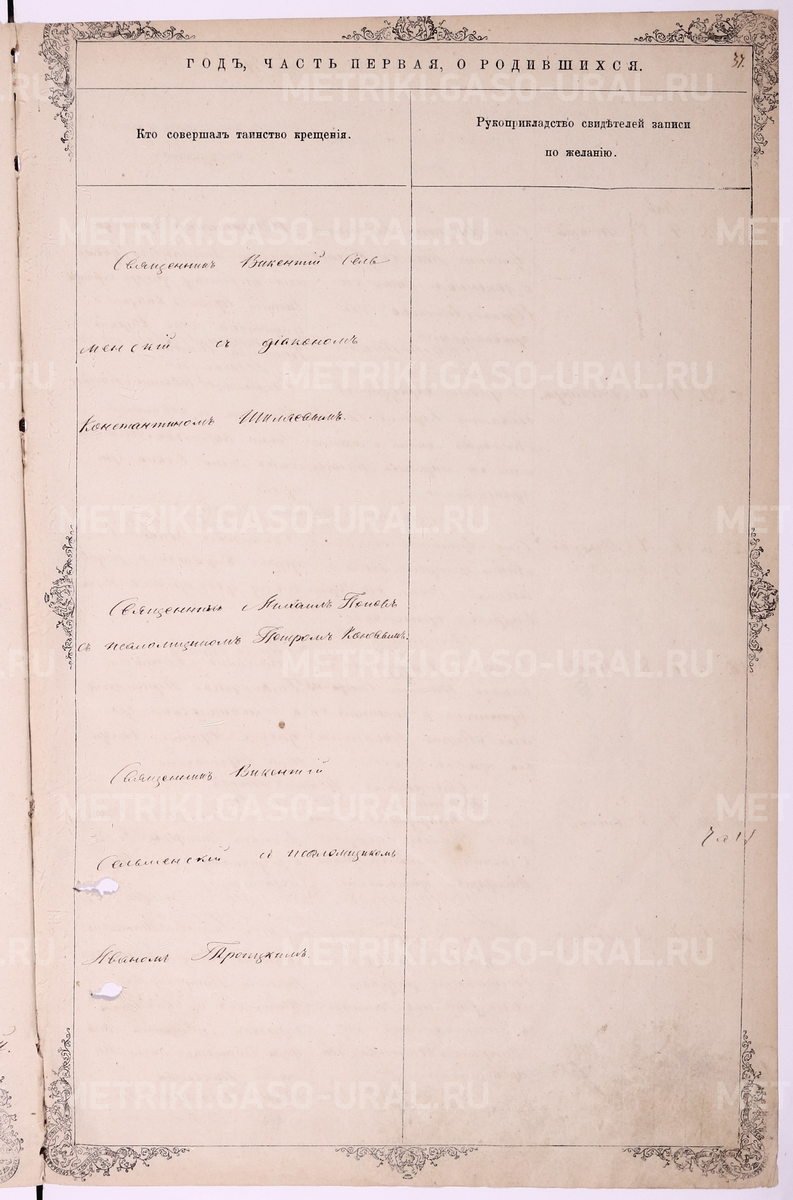 ГОДЪ, ЧАСТЬ ПЕРВАЯ, О РОДИВШИХСЯ.
37.
Кто совершалъ таинство крещенія.
Рукоприкладство свидѣтелей записи
по желанію.
Священникъ Викентій Сель
менскій съ діакономъ
Константиномъ Шиляевымъ.
Священникъ Михаилъ Поповъ
съ псаломщикомъ Петромъ
Священникъ Викентій
Сельменскій съ псаломщикомъ
Иваномъ Троицкимъ.
METRIKI.GASO-URAL.RU